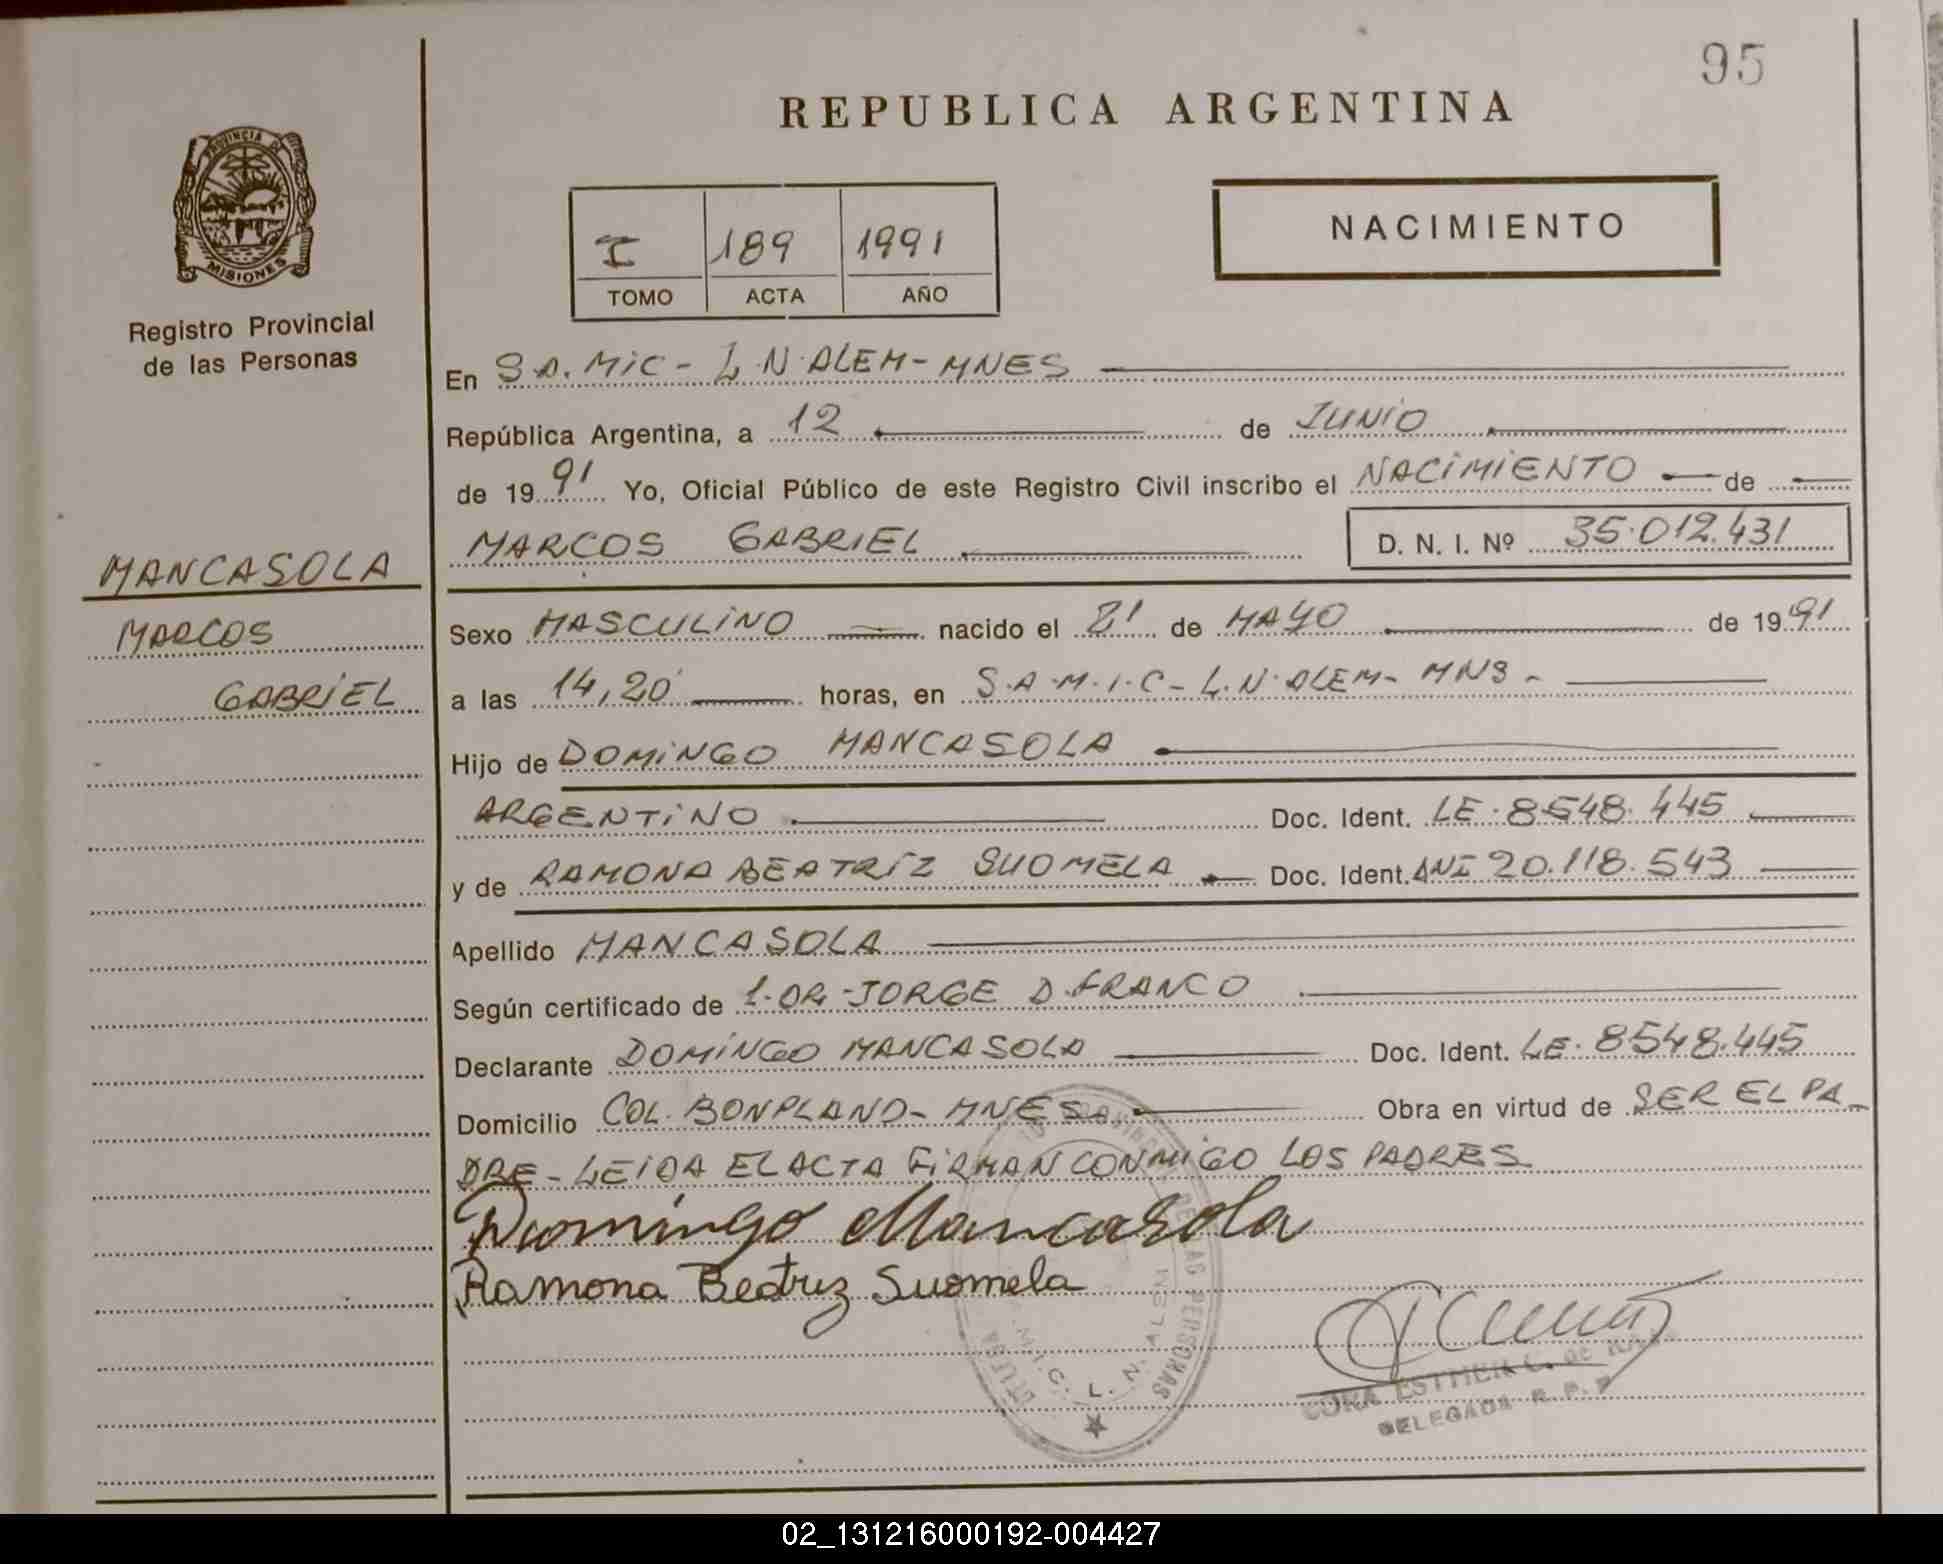 95
REPUBLICA ARGENTINA
PROVINCIA DE
MISIONES
Registro Provincial
de las Personas
I 189 1991
TOMO ACTA AÑO
NACIMIENTO
En S.A.MIC - L.N.ALEM - MNES
República Argentina, a 12 de JUNIO
de 1991 Yo, Oficial Público de este Registro Civil inscribo el NACIMIENTO de
MARCOS GABRIEL D. N. I. Nº 35.012.431
MANCASOLA
MARCOS
GABRIEL
Sexo MASCULINO nacido el 21 de MAYO de 1991
a las 14,20 horas, en S.A.M.I.C - L.N.ALEM - MNS -
Hijo de DOMINGO MANCASOLA
ARGENTINO Doc. Ident. LE. 8548.445
y de RAMONA BEATRIZ SUOMELA Doc. Ident. DNI 20.118.543
Apellido MANCASOLA
Según certificado de JORGE D. FRANCO
Declarante DOMINGO MANCASOLA Doc. Ident. LE. 8548.445
Domicilio COL. BONPLAND - MNES. Obra en virtud de SER EL PA-
DRE - LEIDA EL ACTA FIRMAN CONMIGO LOS PADRES
Domingo Mancasola
Ramona Beatriz Suomela
PROVINCIAL DE LAS PERSONAS
M.I.C. L. N. ALEM
ESTHER C. de
DELEGADA R. P. P.
02_131216000192-004427